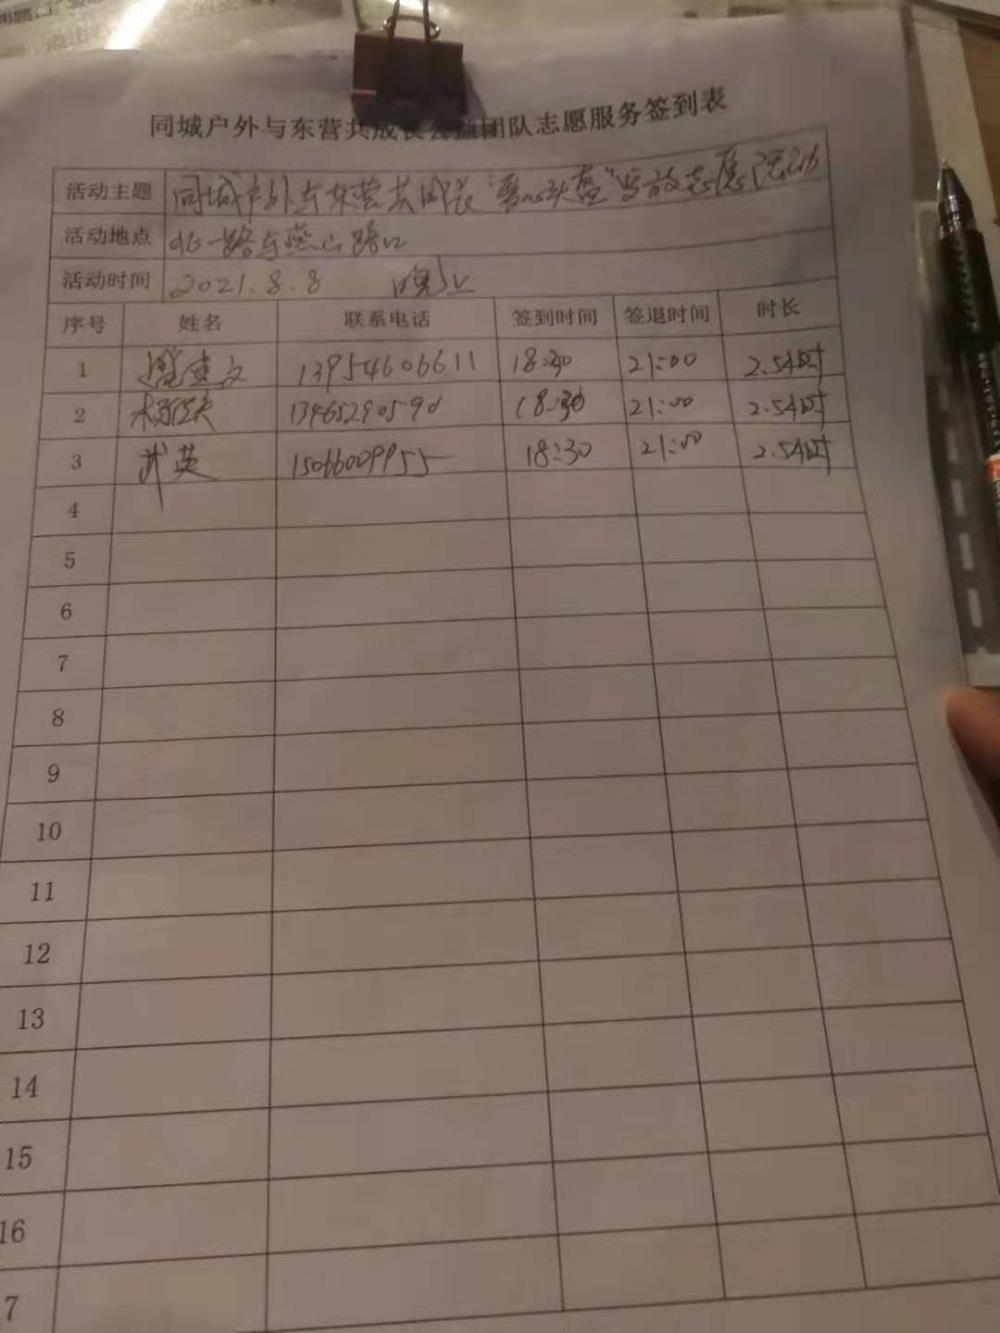 同城户外与东营共成长公益团队志愿服务签到表
活动主题 同城户外与东营共成长"爱心头盔"发放志愿活动
活动地点 北一路与燕山路口
活动时间 2021.8.8 晚上
序号 姓名 联系电话 签到时间 签退时间 时长
1 文 13954606611 18:30 21:00 2.5小时
2 13465290590 18:30 21:00 2.5小时
3 武英 15066009955 18:30 21:00 2.5小时
4
5
6
7
8
9
10
11
12
13
14
15
16
7